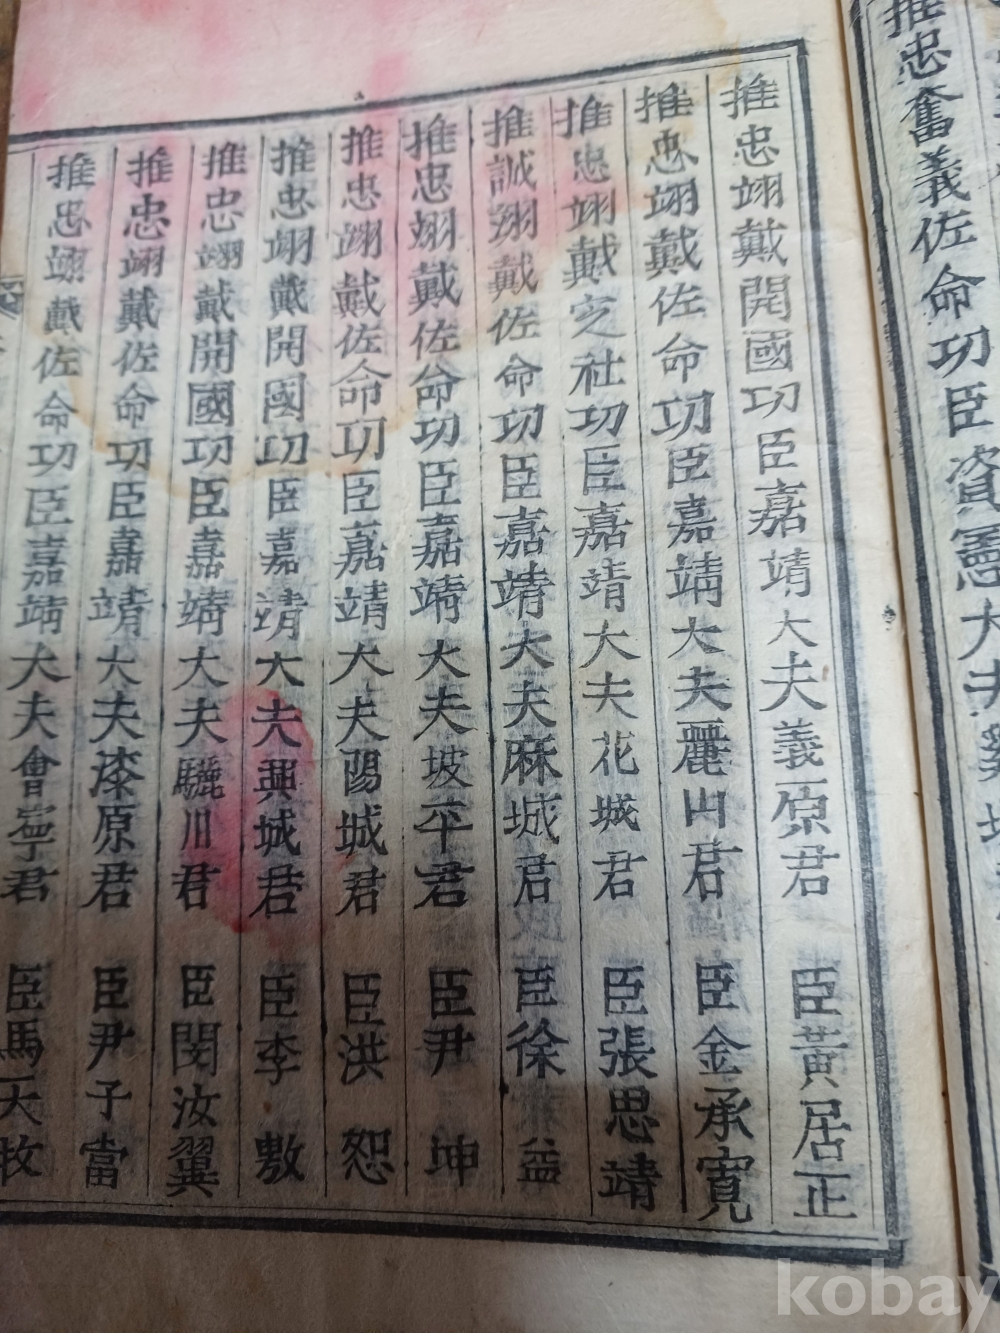 推忠奮義佐命功臣資憲大夫
推忠翊戴開國功臣嘉靖大夫義原君 臣黃居正
推忠翊戴佐命功臣嘉靖大夫麗山君 臣金承寬
推忠翊戴定社功臣嘉靖大夫花城君 臣張思靖
推誠翊戴佐命功臣嘉靖大夫麻城君 臣徐益
推忠翊戴佐命功臣嘉靖大夫坡平君 臣尹坤
推忠翊戴佐命功臣嘉靖大夫陽城君 臣洪恕
推忠翊戴開國功臣嘉靖大夫興城君 臣李敷
推忠翊戴開國功臣嘉靖大夫驪川君 臣閔汝翼
推忠翊戴佐命功臣嘉靖大夫漆原君 臣尹子當
推忠翊戴佐命功臣嘉靖大夫會寧君 臣馬天牧
kobay